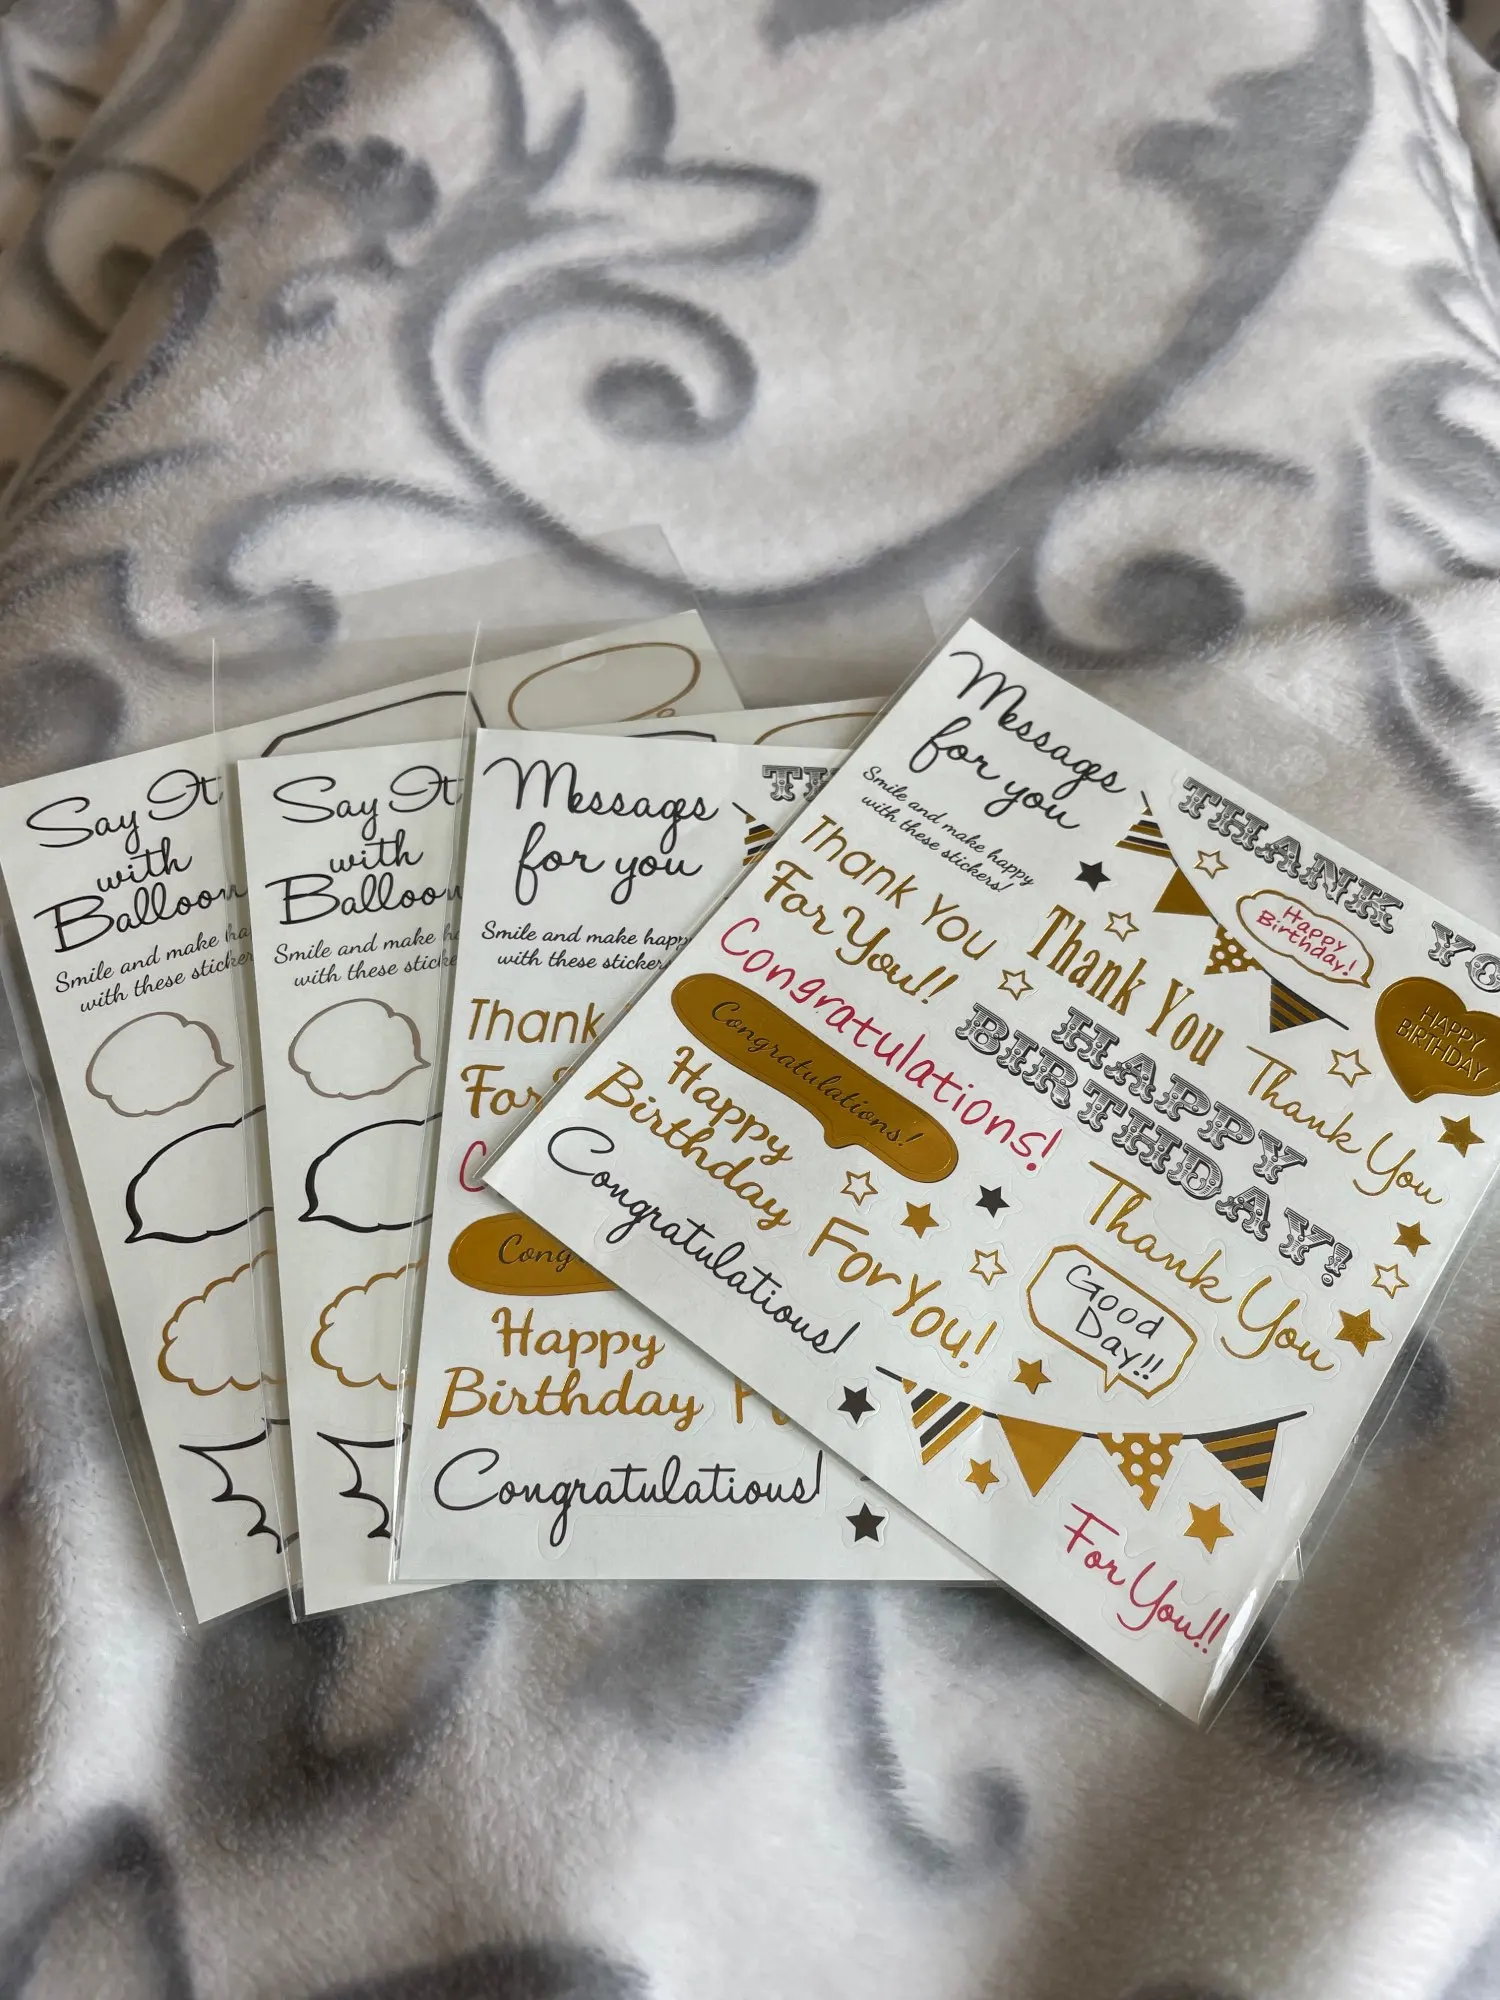 Say It
with
Balloon
Smile and make ha
with these sticker
Say It
with
Balloon
Smile and make h
with these sticke
Messages
for you
Smile and make happ
with these sticker
Thank
For
C
Cong
Happy
Birthday
Congratulations!
Messages
for you
Smile and make happy
with these stickers!
THANK YO
Thank You
For You!!
Thank You
Happy
Birthday!
HAPPY
BIRTHDAY
Congratulations!
Congratulations!
HAPPY
BIRTHDAY!
Thank You
Happy
Birthday
Congratulations!
For You!
Thank You
Good
Day!!
For You!!